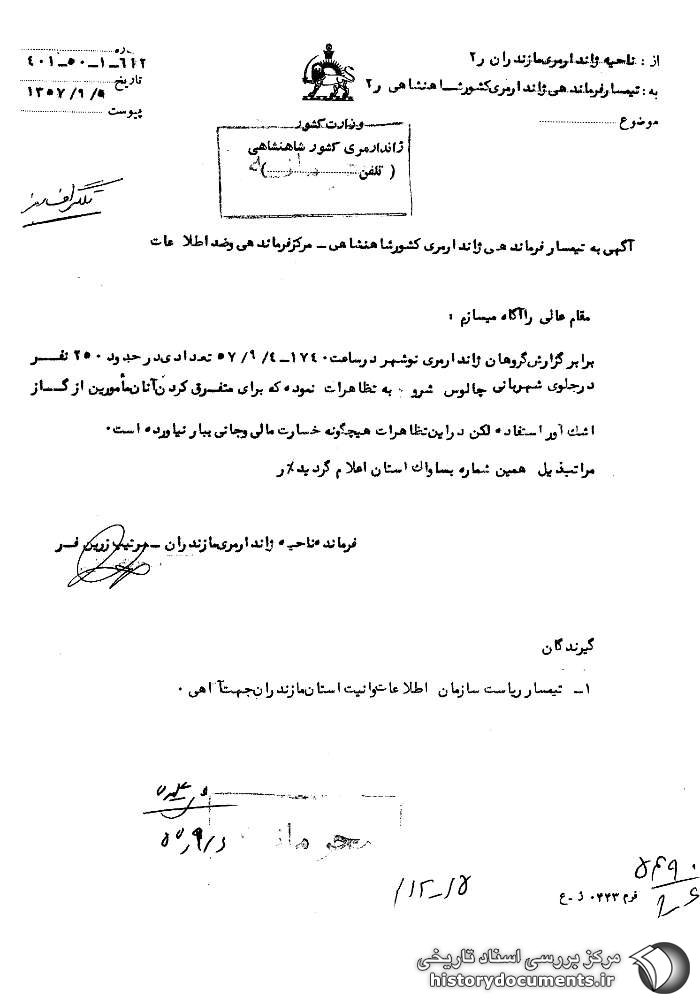 از : ناحیه ژاندارمری مازندران ر۲
به : تیمسار فرماندهی ژاندارمری کشور شاهنشاهی ر۲
موضوع
شماره
۴۰۱-۵۰-۱-۶۱۲
تاریخ
۱۳۵۷/۹/۵
پیوست
وزارت کشور
ژاندارمری کشور شاهنشاهی
( تلفن )
تلگراف رمز
آگهی به تیمسار فرماندهی ژاندارمری کشور شاهنشاهی - مرکز فرماندهی و ضد اطلاعات
مقام عالی را آگاه میسازم :
برابر گزارش گروهان ژاندارمری نوشهر در ساعت ۱۷۴۰-۵۷/۹/۴ تعدادی در حدود ۲۵۰ نفر
در جلوی شهربانی چالوس شرو به تظاهرات نموده که برای متفرق کردن آنان مأمورین از گاز
اشک آور استفاده لکن در این تظاهرات هیچگونه خسارت مالی و جانی ببار نیاورده است.
مراتب ذیل همین شماره بساواک استان اعلام گردید٪ر
فرمانده ناحیه ژاندارمری مازندران - سرتیپ زرین فر
گیرندگان
۱- تیمسار ریاست سازمان اطلاعات و امنیت استان مازندران جهت آگاهی .
محرمانه
۵۷٫۹/۶
/۱۲-۱۵
۵۴۹۰
۹۶
فرم ۰۴۴۳ ژ-ع
مرکز بررسی اسناد تاریخی
historydocuments.ir